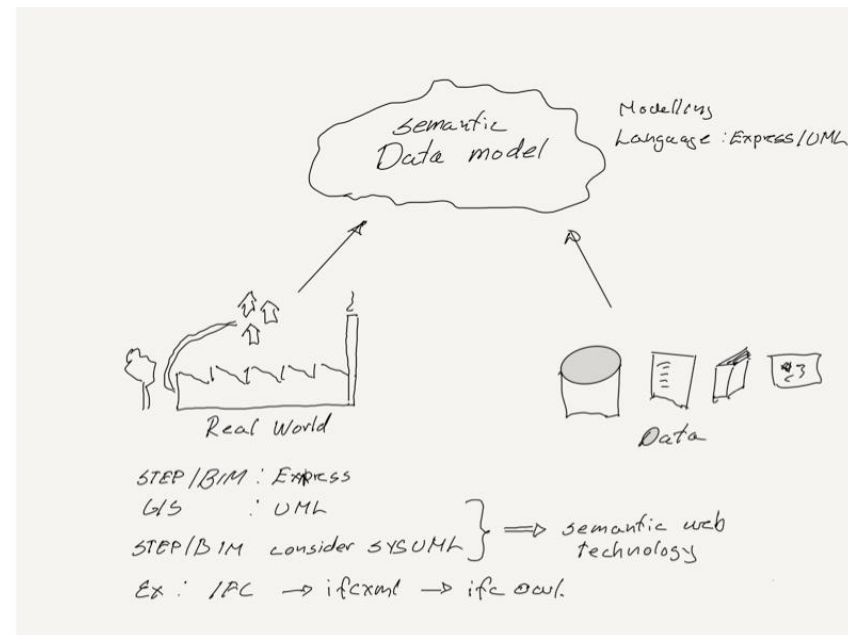 semantic
Data model
Modelling
Language : Express/UML
Real World
Data
STEP/BIM : Express
GIS : UML
STEP/BIM consider SYSUML
semantic web
technology
Ex : IFC → ifcxml → ifc owl.